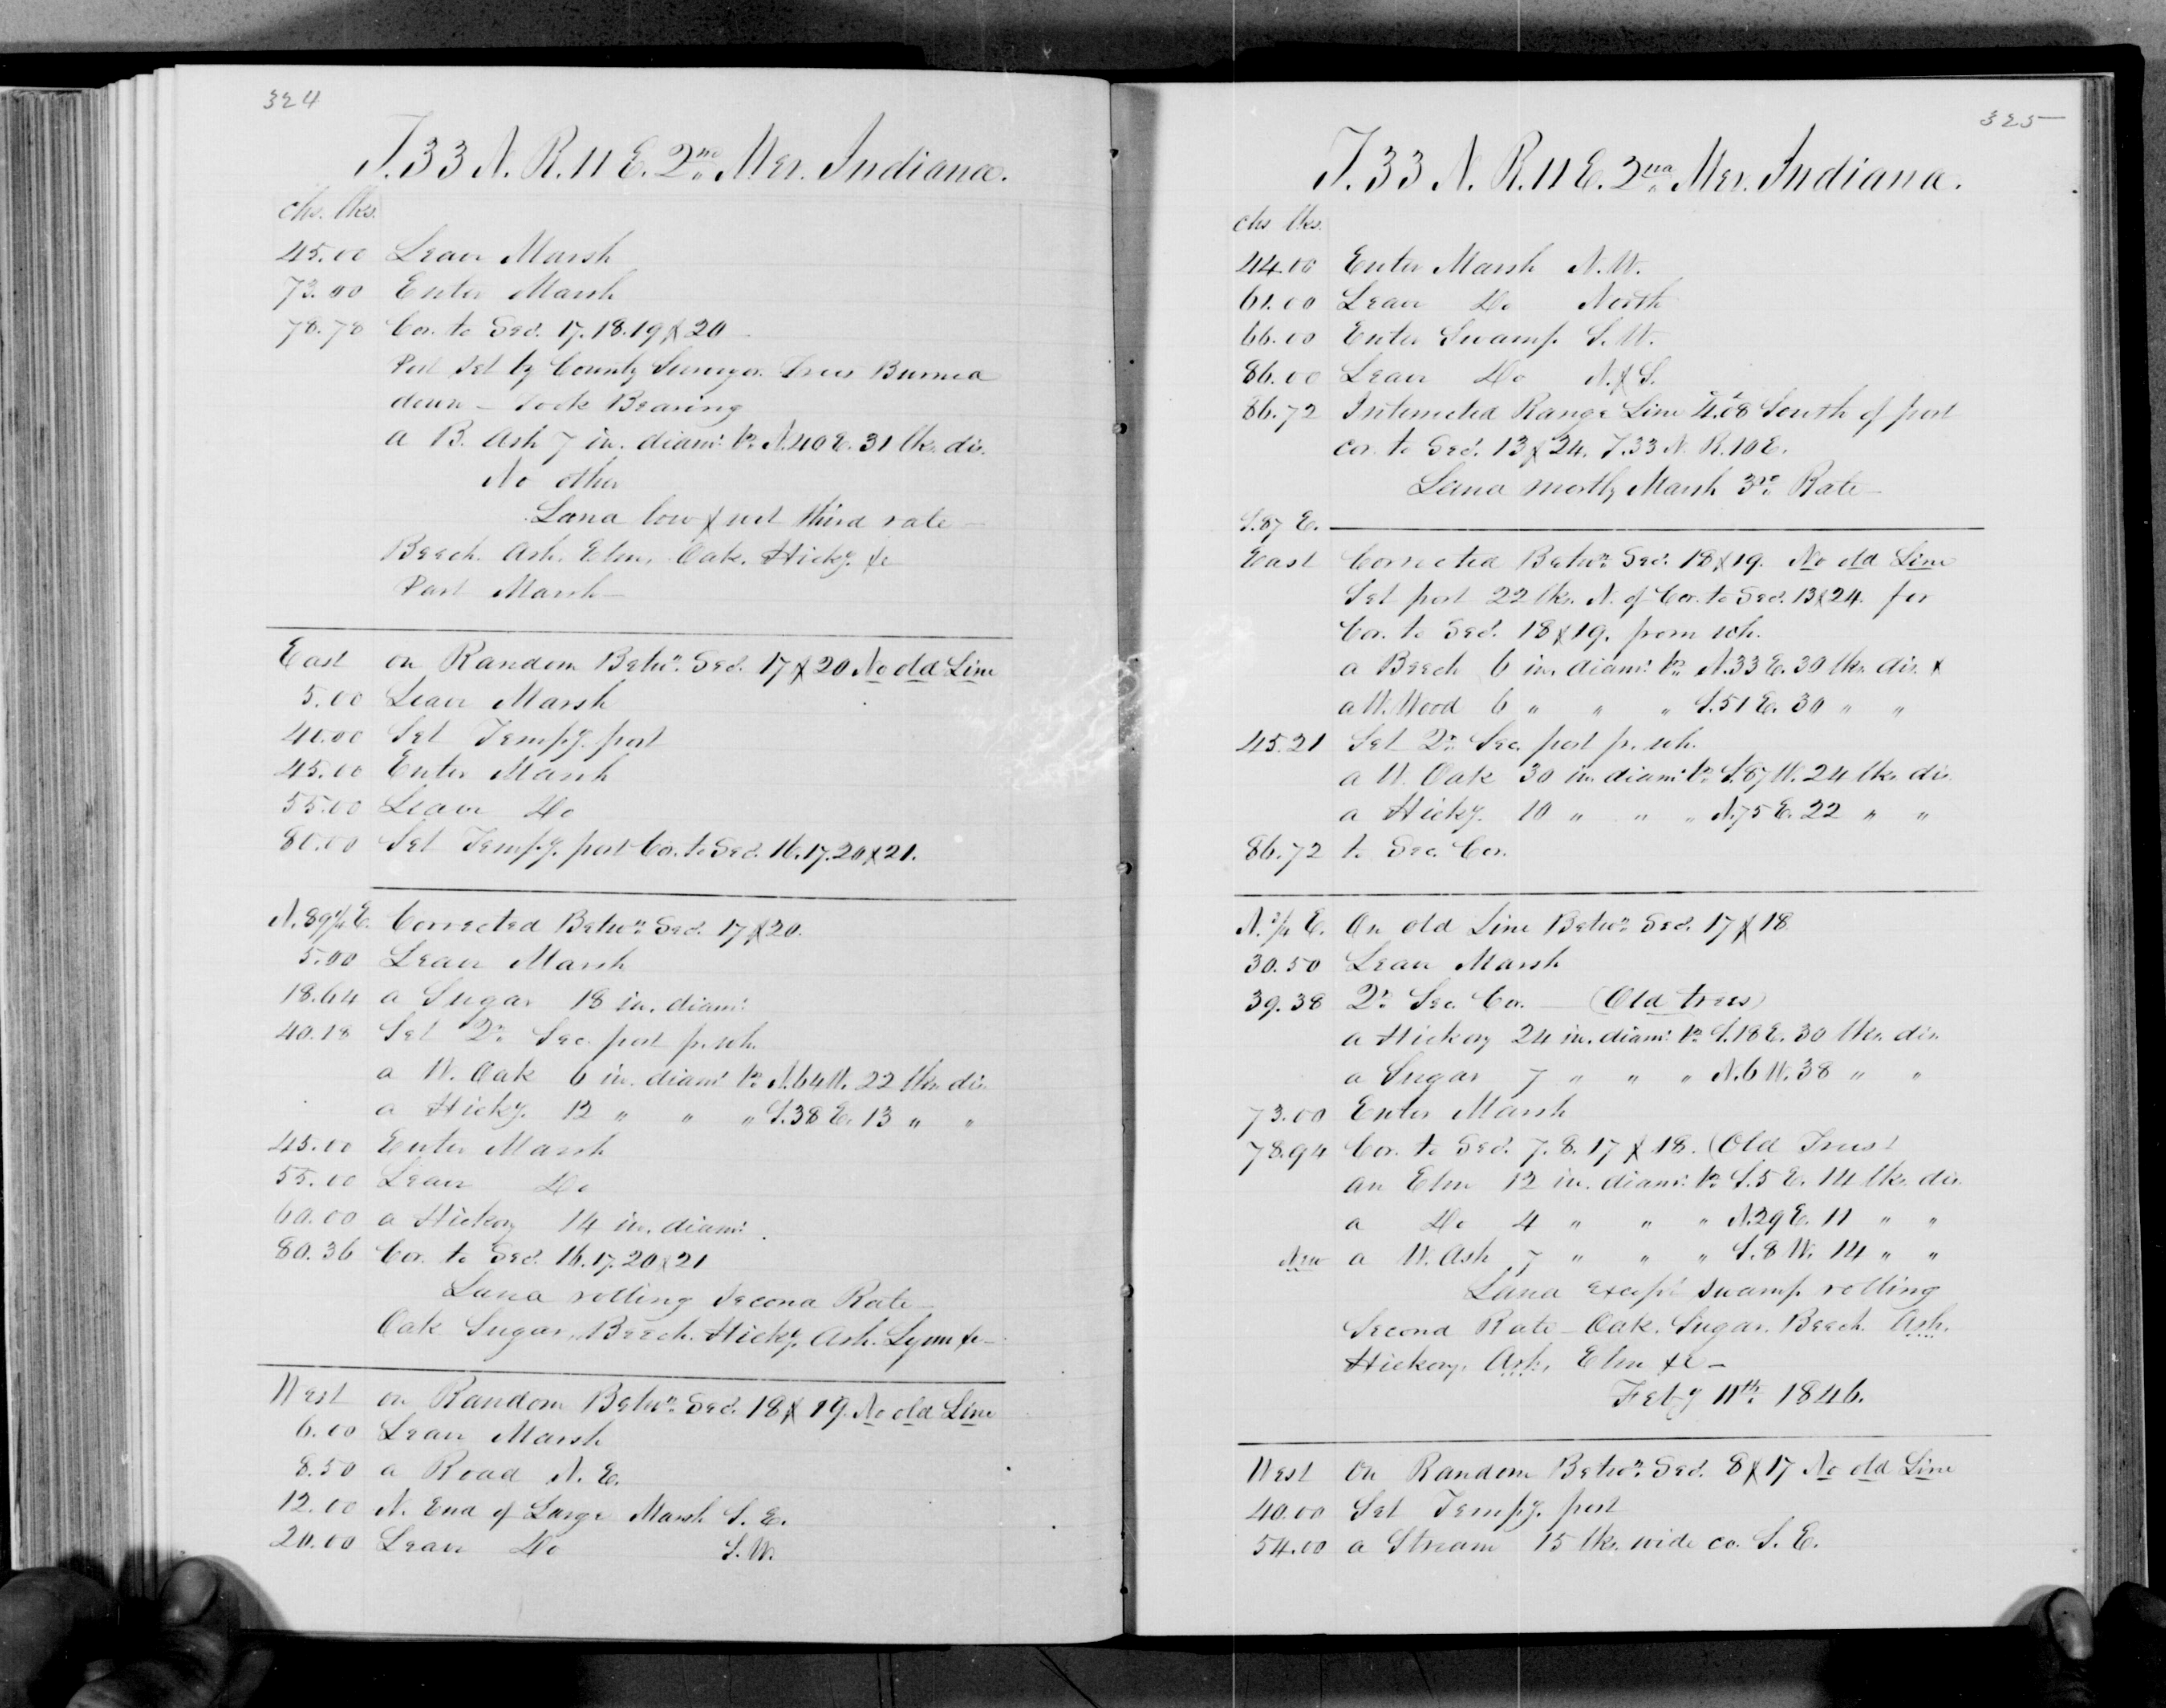 324
T. 33 N. R. 11 E. 2nd Mer. Indiana.
chs. lks.
45.00 Leave Marsh
73.00 Enter Marsh
78.78 Cor. to Secs. 17. 18. 19 & 20
Post set by County Surveyor. Trees Burned
down – took Bearing
a B. Ash 7 in. diamr. brs. N. 40 E. 31 lks. dis.
No other
Land low & wet third rate –
Beech. Ash. Elm. Oak. Hicky. &c
Part Marsh –
East on Random Betwn. Secs. 17 & 20 No old Line
5.00 Leave Marsh
40.00 Set Tempy. post
45.00 Enter Marsh
55.00 Leave Do
80.00 Set Tempy. post Cor. to Secs. 16. 17. 20 & 21.
N. 89 1/4 E. Corrected Betwn. Secs. 17 & 20.
5.00 Leave Marsh
18.64 a Sugar 18 in. diamr.
40.18 Set Qr. Sec. post fr. wh.
a W. Oak 6 in. diamr. brs. N. 64 W. 22 lks. dis.
a Hicky. 12 " " " S. 38 E. 13 " "
45.00 Enter Marsh
55.00 Leave Do
60.00 a Hickory 14 in. diamr.
80.36 Cor. to Secs. 16. 17. 20 & 21
Land rolling Second Rate –
Oak Sugar. Beech. Hicky. Ash. Lynn &c –
West on Random Betwn. Secs. 18 & 19. No old Line
6.00 Leave Marsh
8.50 a Road N. E.
12.00 N. End of Large Marsh S. E.
20.00 Leave Do S. W.
325
T. 33 N. R. 11 E. 2nd Mer. Indiana.
chs lks.
44.00 Enter Marsh N. W.
61.00 Leave Do North
66.00 Enter Swamp. S. W.
86.00 Leave Do N. & S.
86.72 Intersected Range Line 4.08 South of post
cor. to Secs. 13 & 24. T. 33 N. R. 10 E.
Land mostly Marsh 3rd Rate –
S. 87 E.
East Corrected Betwn. Secs. 18 & 19. No old Line
Set post 22 lks. N. of Cor. to Secs. 13 & 24. for
Cor. to Secs. 18 & 19. from wh.
a Beech 6 in. diamr. brs. N. 33 E. 30 lks. dis. &
a W. Wood 6 " " " S. 51 E. 30 " "
45.21 Set Qr. Sec. post fr. wh.
a W. Oak 30 in. diamr. brs. S. 87 W. 24 lks. dis.
a Hicky. 10 " " " N. 75 E. 22 " "
86.72 to Sec. Cor.
N. 3/4 E. On old Line Betwn. Secs. 17 & 18
30.50 Leave Marsh
39.38 Qr. Sec. Cor. – (Old trees)
a Hickory 24 in. diamr. brs. S. 18 E. 30 lks. dis.
a Sugar 7 " " " N. 6 W. 38 " "
73.00 Enter Marsh
78.94 Cor. to Secs. 7. 8. 17 & 18. (Old Trees)
an Elm 12 in. diamr. brs. S. 5 E. 14 lks. dis.
a Do 4 " " " N. 29 E. 11 " "
New a W. Ash 7 " " " S. 8 W. 14 " "
Land except swamp rolling
Second Rate – Oak. Sugar. Beech. Ash.
Hickory. Ash. Elm &c –
Feby 11th 1846.
West On Random Betwn. Secs. 8 & 17 No old Line
40.00 Set Tempy. post
54.00 a Stream 15 lks. wide co. S. E.